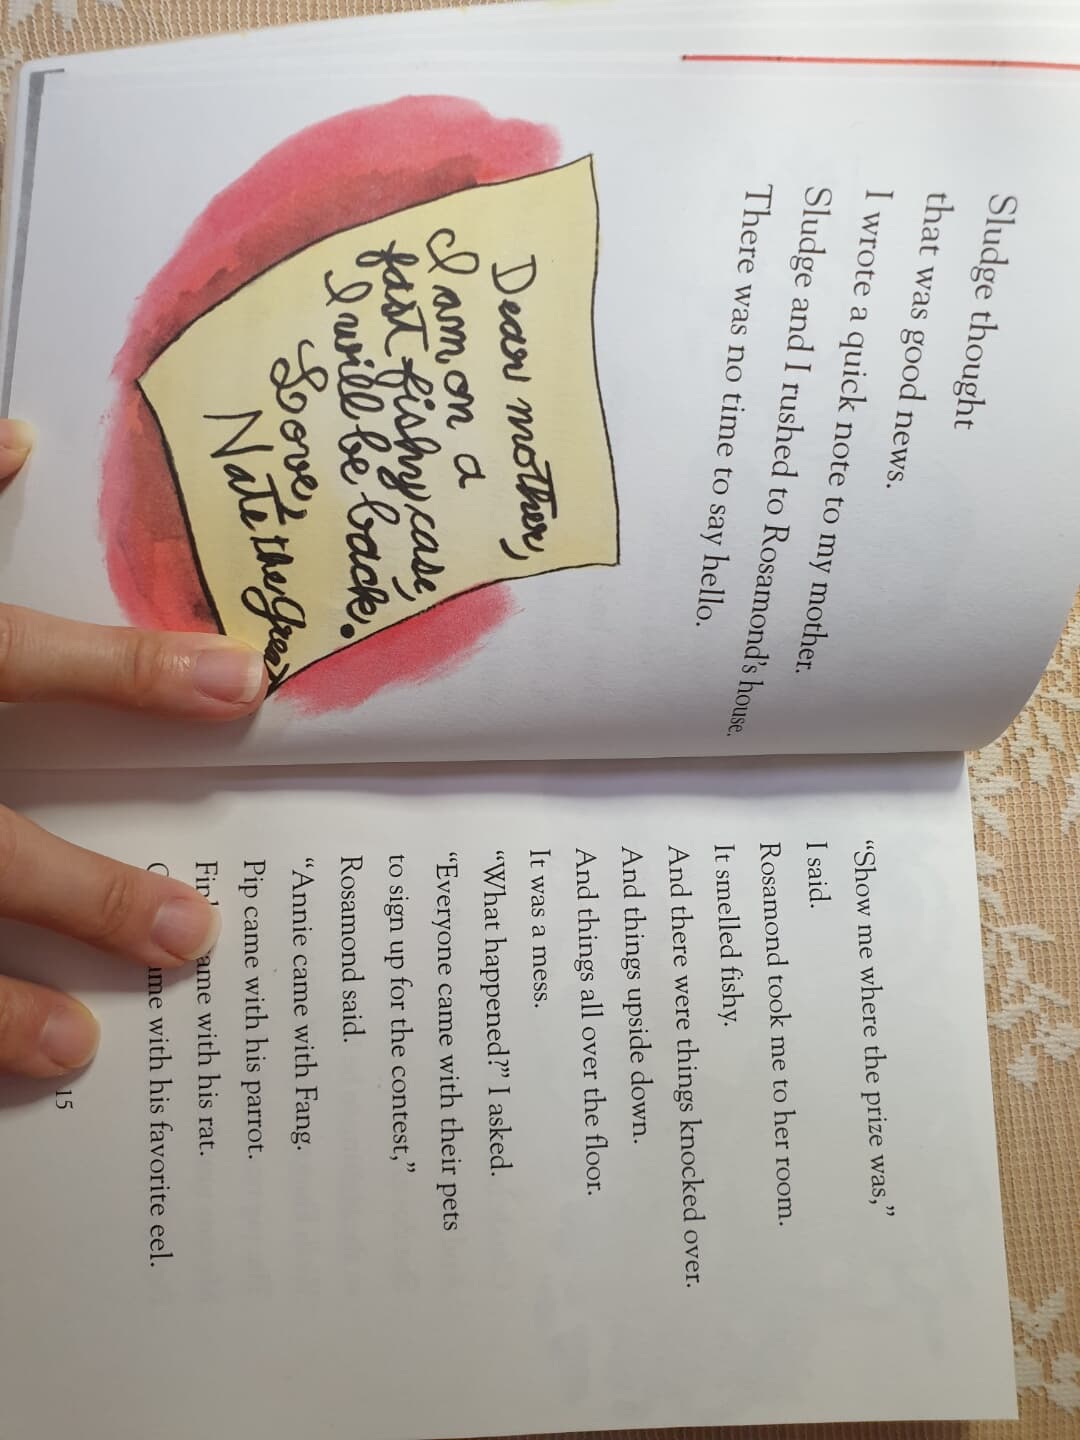 Sludge thought
that was good news.
I wrote a quick note to my mother.
Sludge and I rushed to Rosamond's house.
There was no time to say hello.
Dear mother,
I am on a
fast fishy case,
I will be back.
Love,
Nate the Great
“Show me where the prize was,”
I said.
Rosamond took me to her room.
It smelled fishy.
And there were things knocked over.
And things upside down.
And things all over the floor.
It was a mess.
“What happened?” I asked.
“Everyone came with their pets
to sign up for the contest,”
Rosamond said.
“Annie came with Fang.
Pip came with his parrot.
with his rat.
with his favorite eel.
15